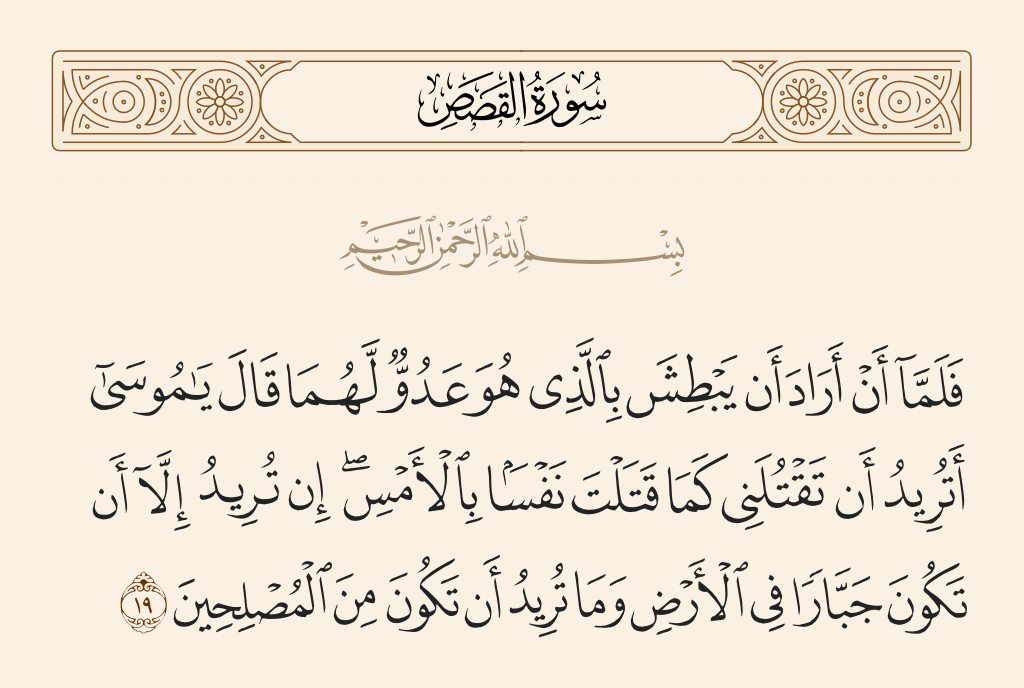 سُورَةُ القَصَصِ
بِسْمِ ٱللَّهِ ٱلرَّحْمَٰنِ ٱلرَّحِيمِ
فَلَمَّآ أَنْ أَرَادَ أَن يَبْطِشَ بِٱلَّذِى هُوَ عَدُوٌّ لَّهُمَا قَالَ يَـٰمُوسَىٰٓ
أَتُرِيدُ أَن تَقْتُلَنِى كَمَا قَتَلْتَ نَفْسًۢا بِٱلْأَمْسِ ۖ إِن تُرِيدُ إِلَّآ أَن
تَكُونَ جَبَّارًا فِى ٱلْأَرْضِ وَمَا تُرِيدُ أَن تَكُونَ مِنَ ٱلْمُصْلِحِينَ ١٩